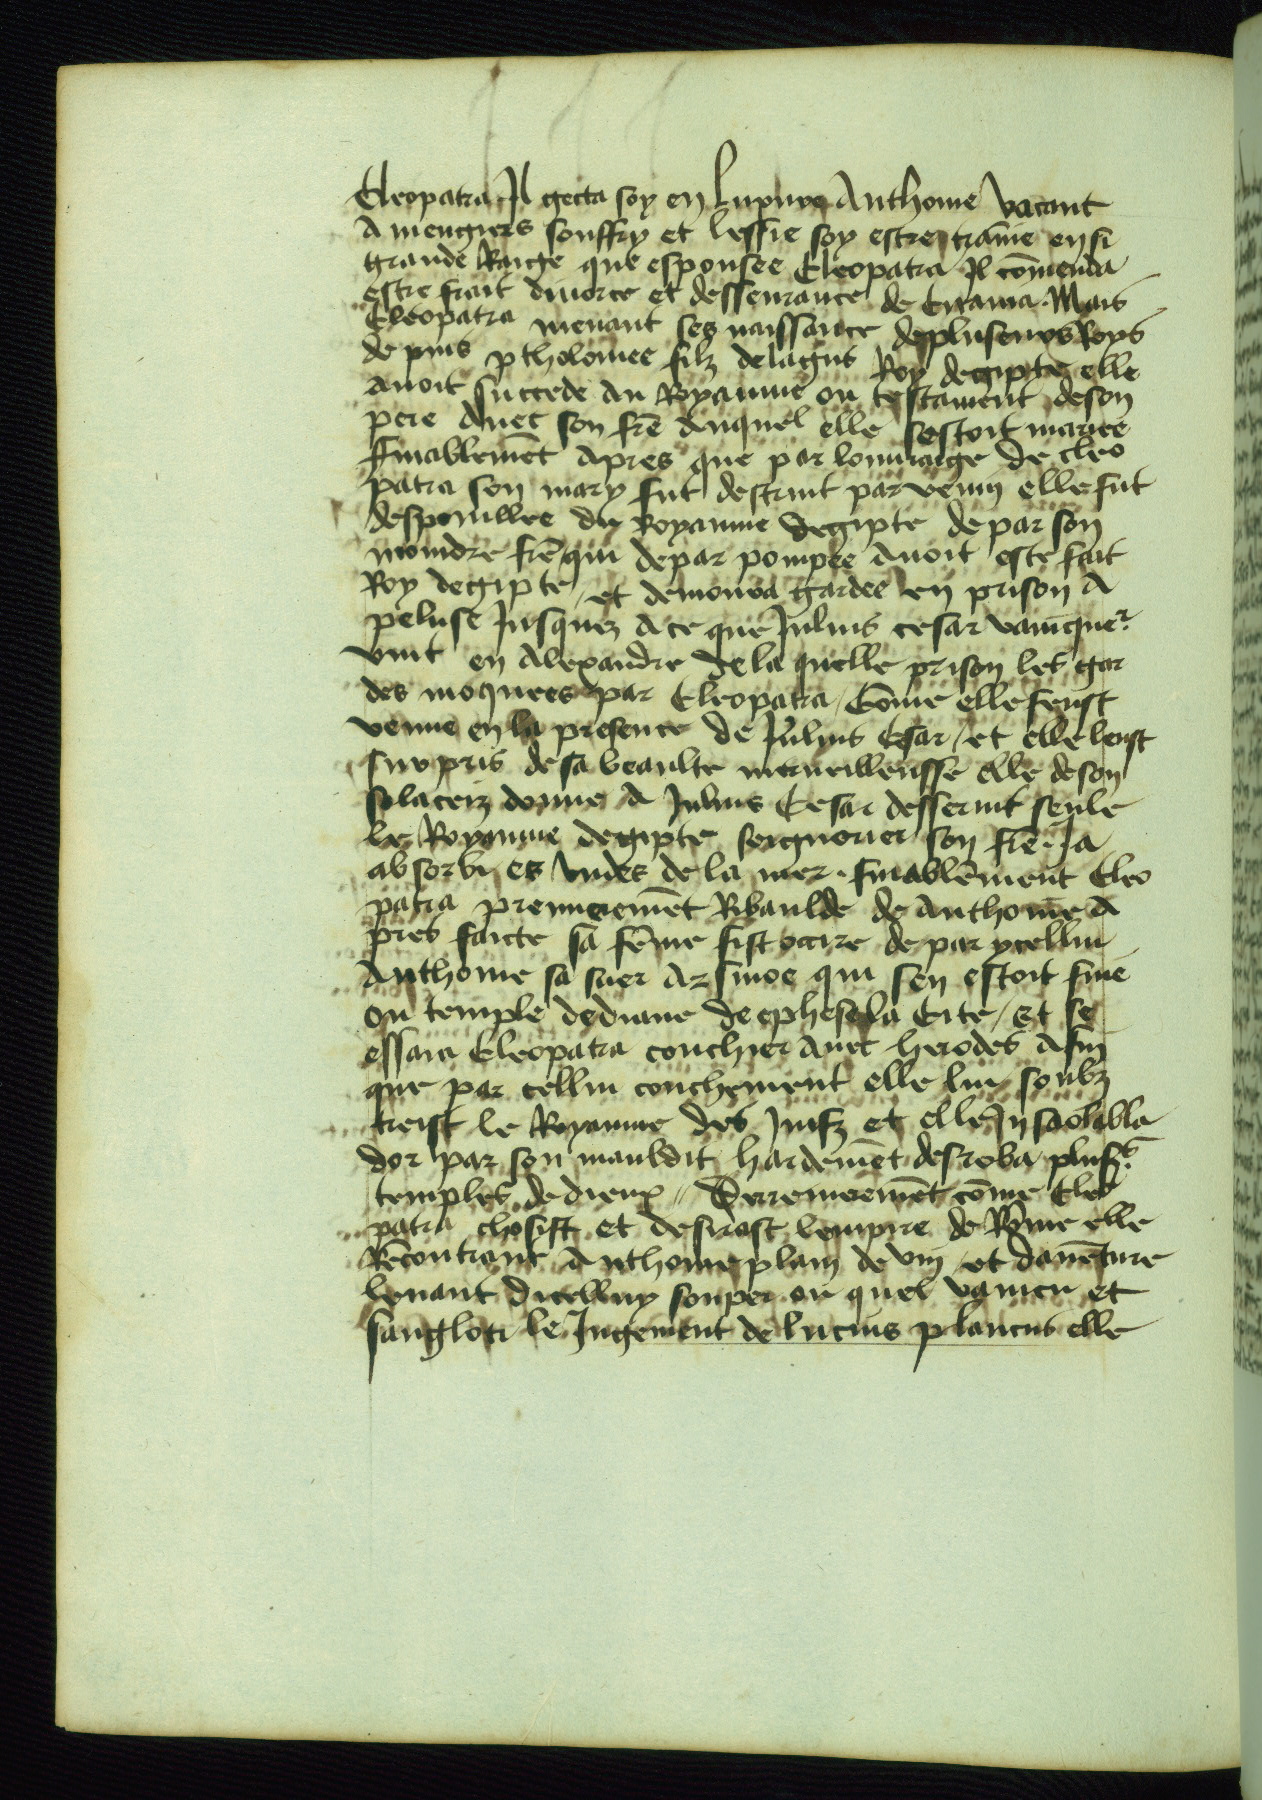 Cleopatra Il gecta soy en luxure Anthoine vacant
A mengiers souffry et lessie soy estre traine en si
grande Raige que espousee Cleopatra Il cōmenda
estre frait divorce et desseurance de Octavia . Mais
Cleopatra menant ses naissance de pluseurs Roys
de puis ptholomee filz de lagus Roy degipte elle
avoit succede au Royaume ou testament de son
pere Avec son frē Auquel elle sestoit mariee
ffinablemēt Apres que par louvraige de cleo
patra son mary fut destruit par venin elle fut
despouillee du Royaume degipte de par son
moindre frē qui de par pompee Avoit este fait
Roy degipte / et demoura gardee en prison A
peluse Jusques A ce que Julius cesar vainqueʳ
vint en Alexandre de la quelle prison les gar
des moquees par Cleopatra / Cōme elle feust
venue en la presence de Julius Cesar / et elle leust
surpris de sa beaulte merveilleusse elle de son
solacein donne A Julius Cesar desservit seule
le Royaume degipte seignorier son frē Ja
absorbi es Undes de la mer . finablēment Cleo
patra premieremēt Ribaulde de Anthoine A
pres faicte sa fēme fist occire de par ycellui
Anthoine sa suer Arsinoe qui sen estoit fuie
ou temple de diane de ephese la Cite / Et se
essaia Cleopatra couchier Avec herodes Afin
que par cellui couchement elle lui soubz
treist le Royaume des Juifz et elle Insaolabla
dor par son mauldit hardemēt desroba plusʳˢ
temples de dieux // Derrenieremēt cōme Cleo
patra chosist et desirast lempire de Rōme elle
Rēcontrant Anthoine plain de vin / et davēture
levant dicelluy souper ou quel vaincu et
sangloti le Jugement de lucius plancus elle